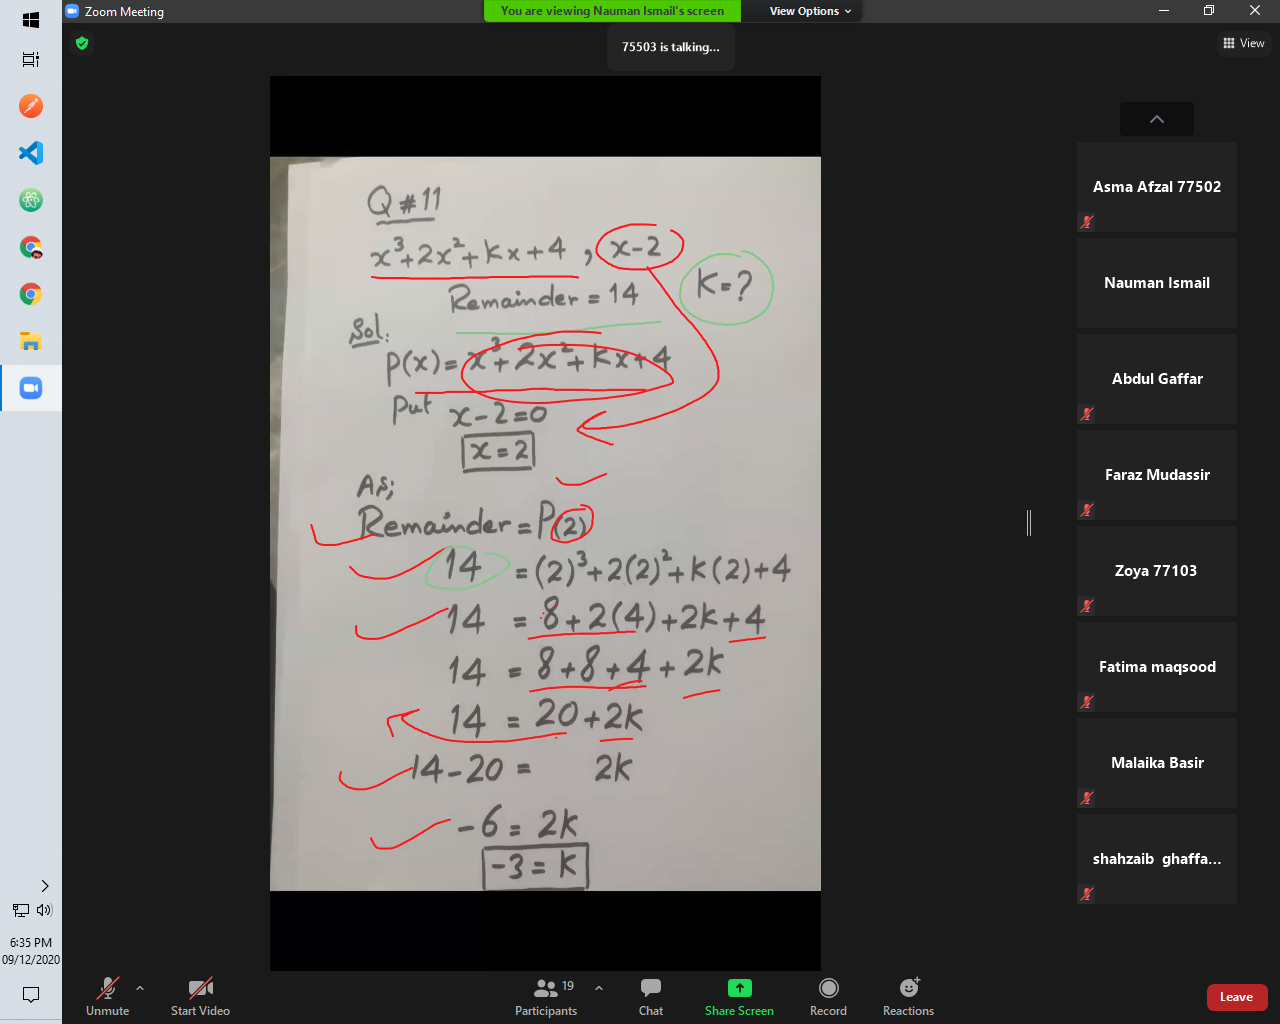 Zoom Meeting
You are viewing Nauman Ismail's screen
View Options
75503 is talking...
View
Q # 11
x³+2x²+kx+4 , x-2
Remainder = 14
K=?
Sol:
P(x)= x³+2x²+kx+4
Put x-2=0
x=2
As;
Remainder = P(2)
14 = (2)³+2(2)²+k(2)+4
14 = 8+2(4)+2k+4
14 = 8+8+4+2k
14 = 20+2k
14-20 = 2k
-6 = 2k
-3 = k
Asma Afzal 77502
Nauman Ismail
Abdul Gaffar
Faraz Mudassir
Zoya 77103
Fatima maqsood
Malaika Basir
shahzaib ghaffa...
6:35 PM
09/12/2020
Unmute
Start Video
19
Participants
Chat
Share Screen
Record
Reactions
Leave